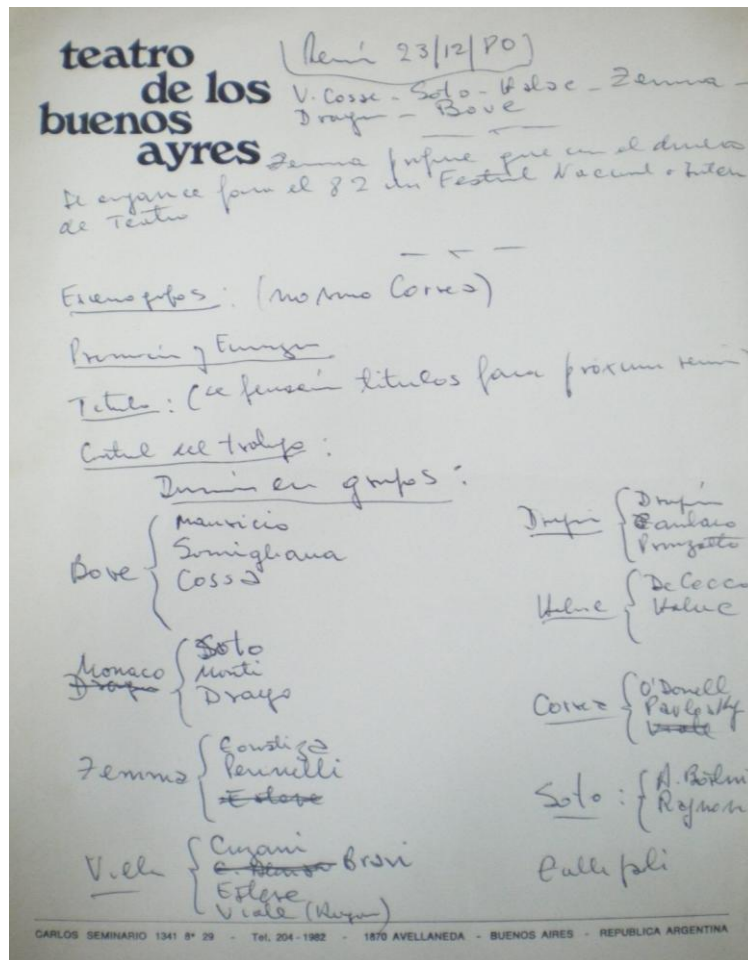 teatro
de los
buenos
ayres
(Reun 23/12/80)
V. Cosse - Soto - Halac - Zemma -
Dragun - Bove
Zemma propone que en el
Se organice para el 82 un Festival Nacional o Inter
de Teatro
Escenografos: (no vino Correa)
Promoción y
Titulo: (se pensarán titulos para próxima reunión
Control del trabajo:
División en grupos:
Bove { Mauricio
Somigliana
Cossa
Monaco Drago { Soto
Monti
Drago
Zemma { Gorostiza
Perinelli
Esteve
Villa { Cuzani
Bravi
Esteve
Viale
Drupi { Drupi
Halac { De Cecco
Halac
Correa { O'Donell
Pavlosky
Viale
Soto: { A. Böhm
Raznov
Gallipoli
CARLOS SEMINARIO 1341 8º 29 - Tel. 204-1982 - 1870 AVELLANEDA - BUENOS AIRES - REPUBLICA ARGENTINA